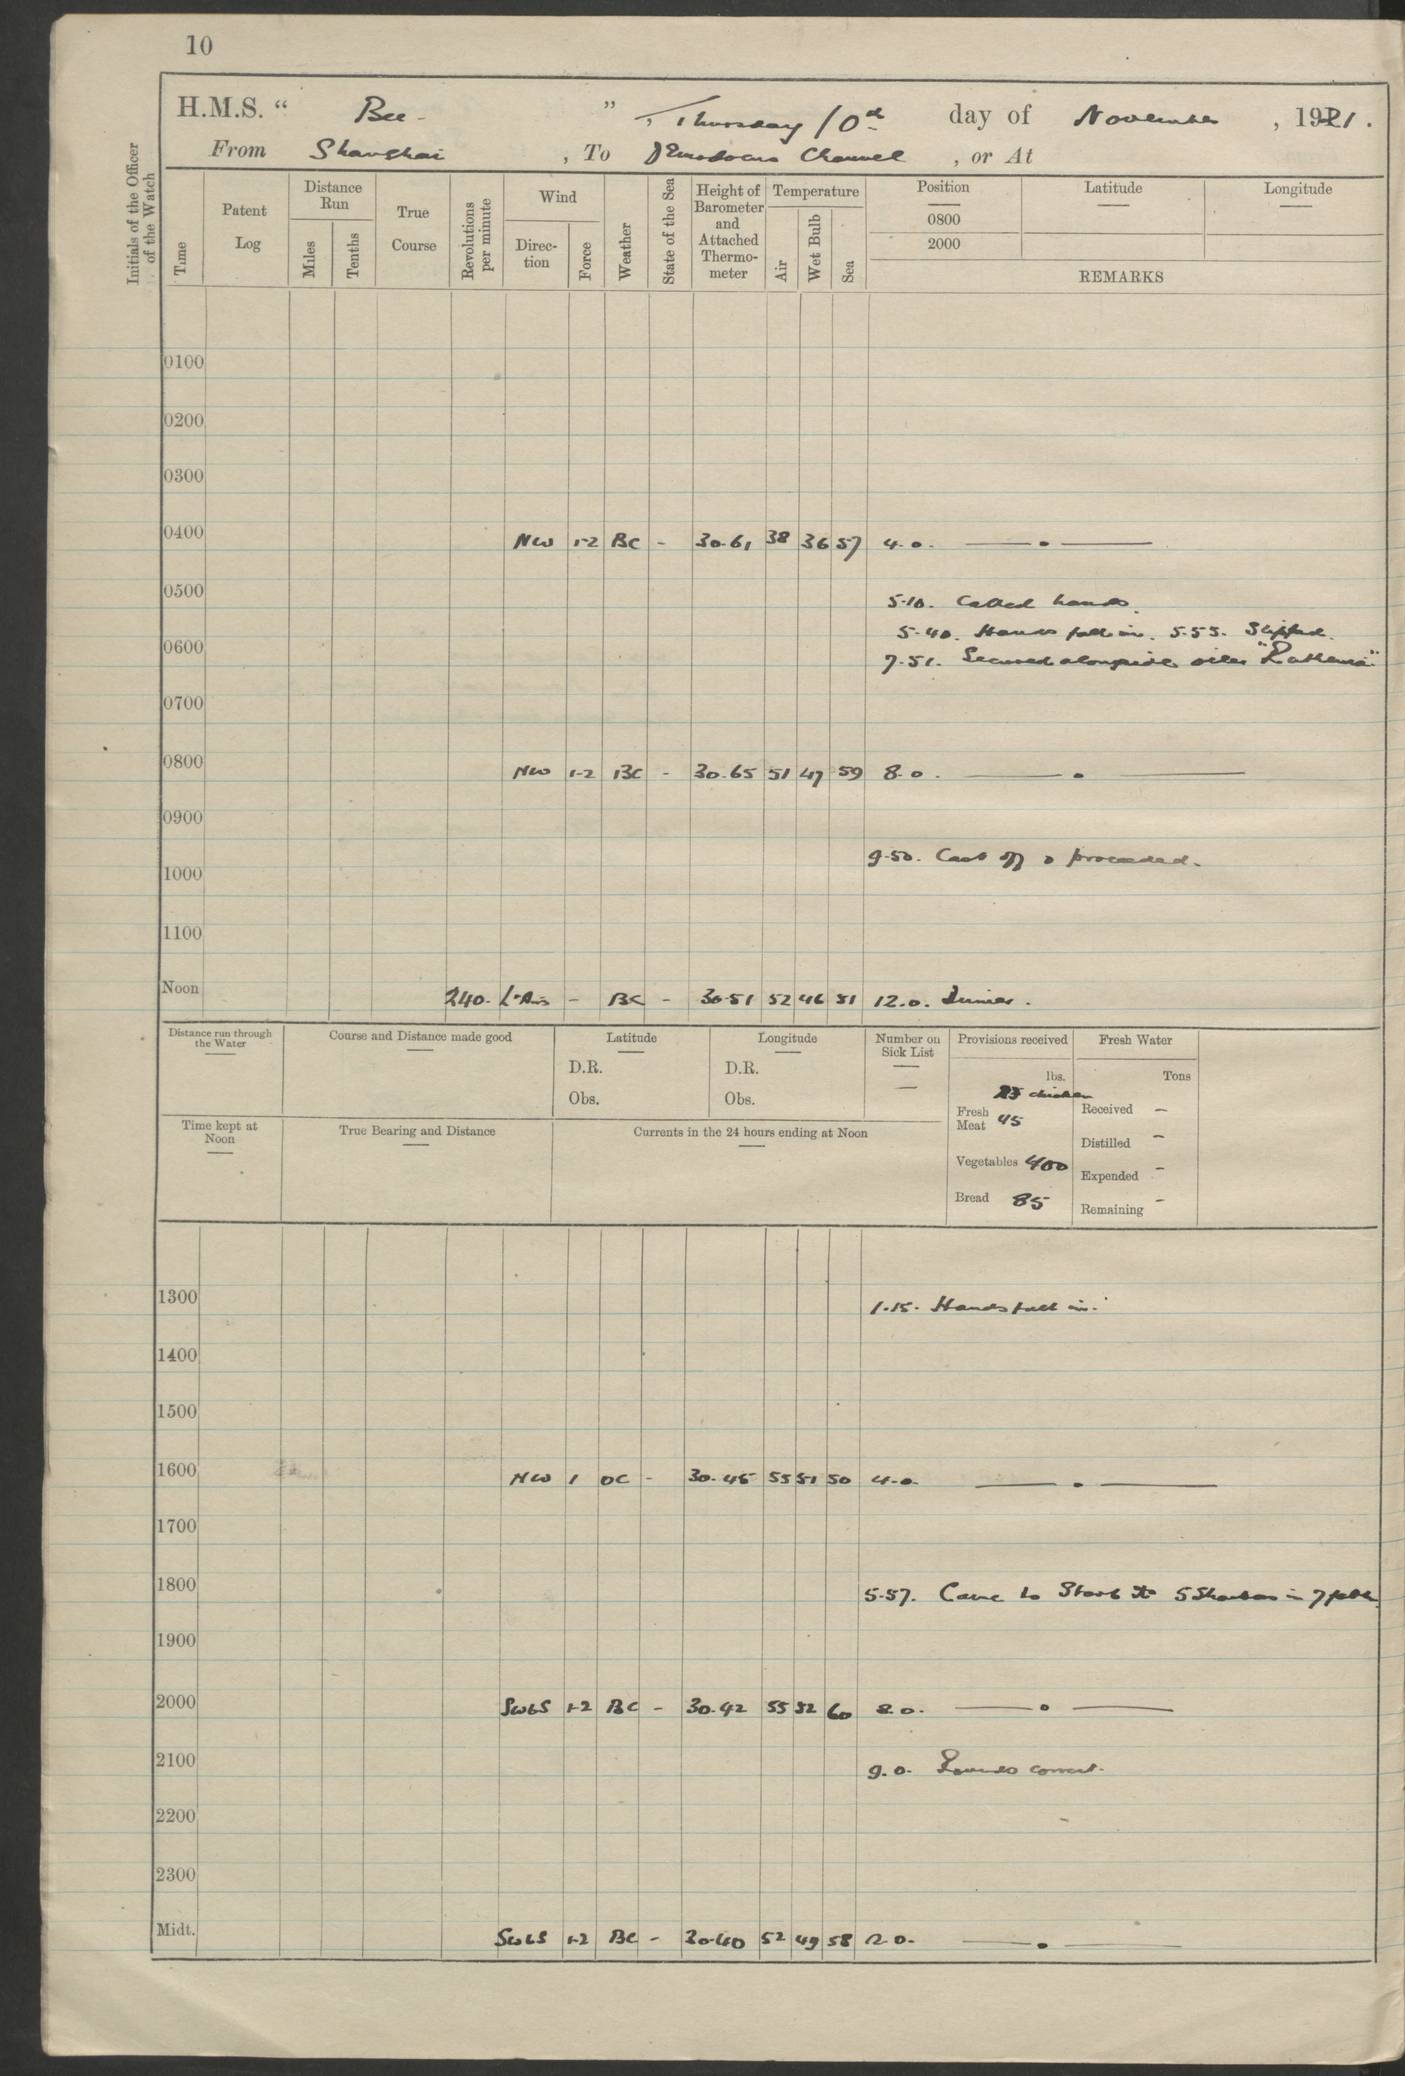 10
H.M.S. “ Bee ” , Thursday 10th day of November , 1921 .
From Shanghai , To Channel , or At
Initials of the Officer of the Watch
Time
Patent Log
Distance Run
Miles
Tenths
True Course
Revolutions per minute
Wind
Direc- tion
Force
Weather
State of the Sea
Height of Barometer and Attached Thermo- meter
Temperature
Air
Wet Bulb
Sea
Position
0800
2000
Latitude
Longitude
REMARKS
0100
0200
0300
0400 NW 1-2 BC - 30.61 38 36 57 4.0.
0500
5.10. Called hands.
5.40. Hands fall in. 5.55. Slipped.
0600
7.51. Secured alongside oiler
0700
0800 NW 1-2 BC - 30.65 51 47 59 8.0.
0900
9.50. Cast off & proceeded.
1000
1100
Noon 240. Lt Airs - BC - 30.51 52 46 51 12.0. Dinner.
Distance run through the Water
Course and Distance made good
Latitude
D.R.
Obs.
Longitude
D.R.
Obs.
Number on Sick List
—
Provisions received
lbs.
chicken
Fresh Meat 45
Vegetables 400
Bread 85
Fresh Water
Tons
Received –
Distilled –
Expended –
Remaining –
Time kept at Noon
True Bearing and Distance
Currents in the 24 hours ending at Noon
1300
1.15. Hands fall in.
1400
1500
1600 NW 1 OC - 30.45 55 51 50 4.0.
1700
1800
5.57. Came to Starb 5 Shackles in 7 fath
1900
2000 SWbS 1-2 BC - 30.42 55 52 60 8.0.
2100
9.0. Rounds correct.
2200
2300
Midt. SWbS 1-2 BC - 30.40 52 49 58 12.0.